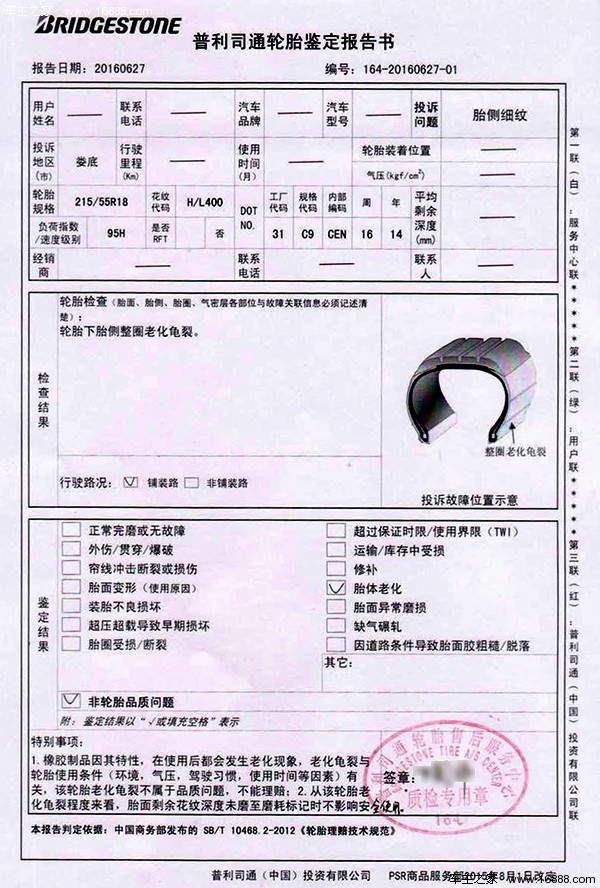 车主之家 www.16888.com
BRIDGESTONE
普利司通轮胎鉴定报告书
报告日期：20160627 编号：164-20160627-01
用户姓名 联系电话 汽车品牌 汽车型号 投诉问题 胎侧细纹
投诉地区(市) 娄底 行驶里程(Km) 使用时间(月) 轮胎装着位置
气压(kgf/cm²)
轮胎规格 215/55R18 花纹代码 H/L400 DOT NO. 工厂代码 规格代码 内部编码 周 年 平均剩余深度(mm)
负荷指数/速度级别 95H 是否RFT 否 31 C9 CEN 16 14
经销商 联系电话 联系人
轮胎检查（胎面、胎侧、胎圈、气密层各部位与故障关联信息必须记述清
楚）：
轮胎下胎侧整圈老化龟裂。
检查结果
整圈老化龟裂
行驶路况： 铺装路 非铺装路
投诉故障位置示意
鉴定结果
正常完磨或无故障 超过保证时限/使用界限（TWI）
外伤/贯穿/爆破 运输/库存中受损
帘线冲击断裂或损伤 修补
胎面变形（使用原因） 胎体老化
装胎不良损坏 胎面异常磨损
超压超载导致早期损坏 缺气碾轧
胎圈受损/断裂 因道路条件导致胎面胶粗糙/脱落
其它：
非轮胎品质问题
附：鉴定结果以“√或填充空格”表示
特别事项：
1.橡胶制品因其特性，在使用后都会发生老化现象，老化龟裂与
轮胎使用条件（环境，气压，驾驶习惯，使用时间等因素）有
关，该轮胎老化龟裂不属于品质问题，不能理赔；2.从该轮胎老
化龟裂程度来看，胎面剩余花纹深度未磨至磨耗标记时不影响安全使用.
签章：
普利司通轮胎售后服务中心
BRIDGESTONE TIRE AIS CENTER
质检专用章
164
本报告判定依据：中国商务部发布的 SB/T 10468.2-2012《轮胎理赔技术规范》
普利司通（中国）投资有限公司 PSR商品服务部2015年8月1日改定
第一联（白）：服务中心联*****第二联（绿）：用户联*****第三联（红）：普利司通（中国）投资有限公司联
车主之家 www.16888.com